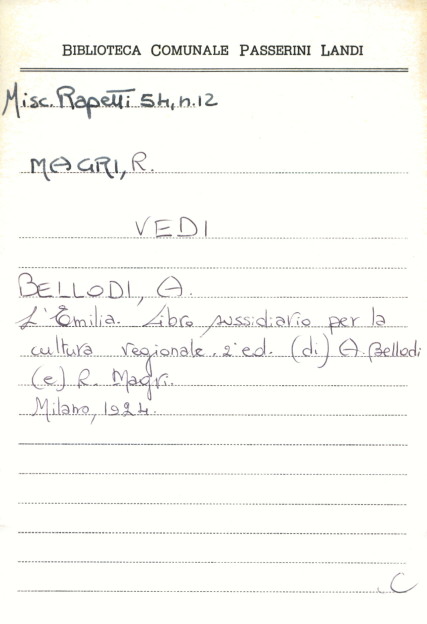 BIBLIOTECA COMUNALE PASSERINI LANDI
Misc. Rapetti 54, n.12
MAGRI, R.
VEDI
BELLODI, A.
L'Emilia. Libro sussidiario per la
cultura regionale. 2ª ed. (di) A. Bellodi
(e) R. Magri.
Milano, 1924.
C